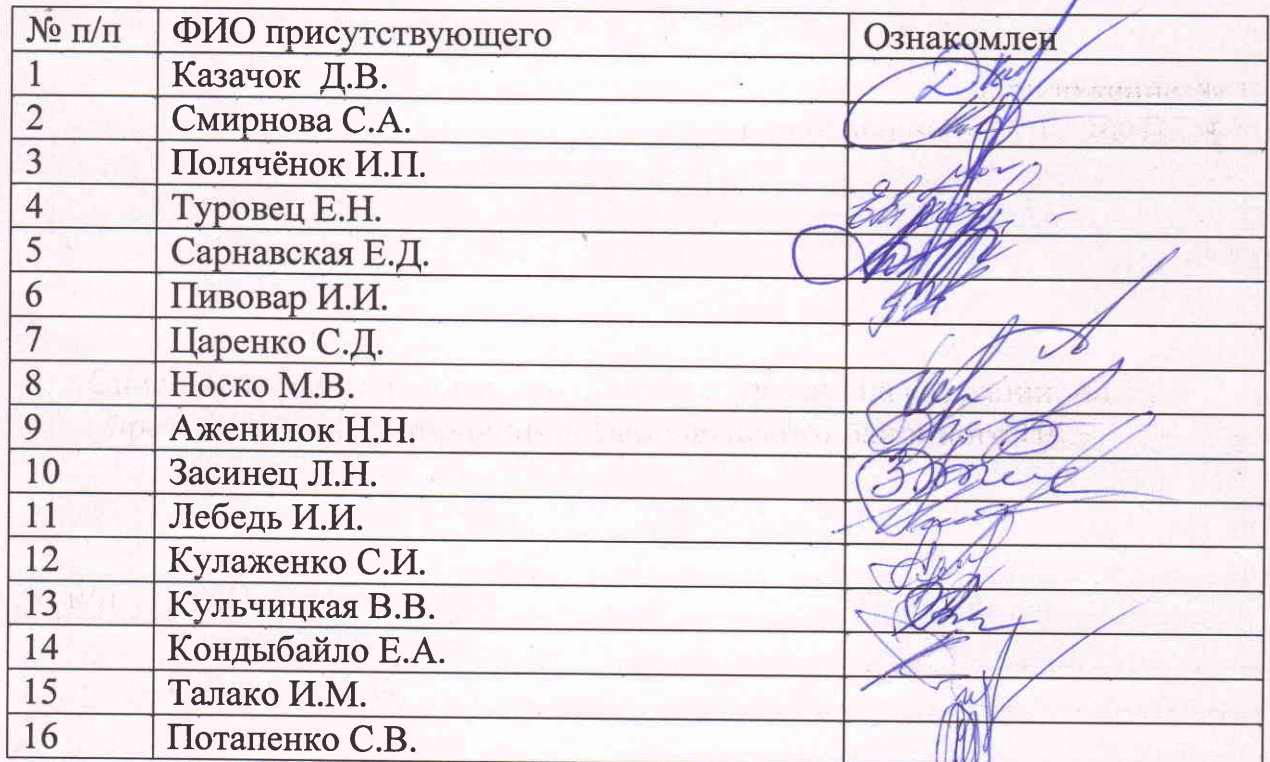 № п/п ФИО присутствующего Ознакомлен
1 Казачок Д.В.
2 Смирнова С.А.
3 Полячёнок И.П.
4 Туровец Е.Н.
5 Сарнавская Е.Д.
6 Пивовар И.И.
7 Царенко С.Д.
8 Носко М.В.
9 Аженилок Н.Н.
10 Засинец Л.Н.
11 Лебедь И.И.
12 Кулаженко С.И.
13 Кульчицкая В.В.
14 Кондыбайло Е.А.
15 Талако И.М.
16 Потапенко С.В.